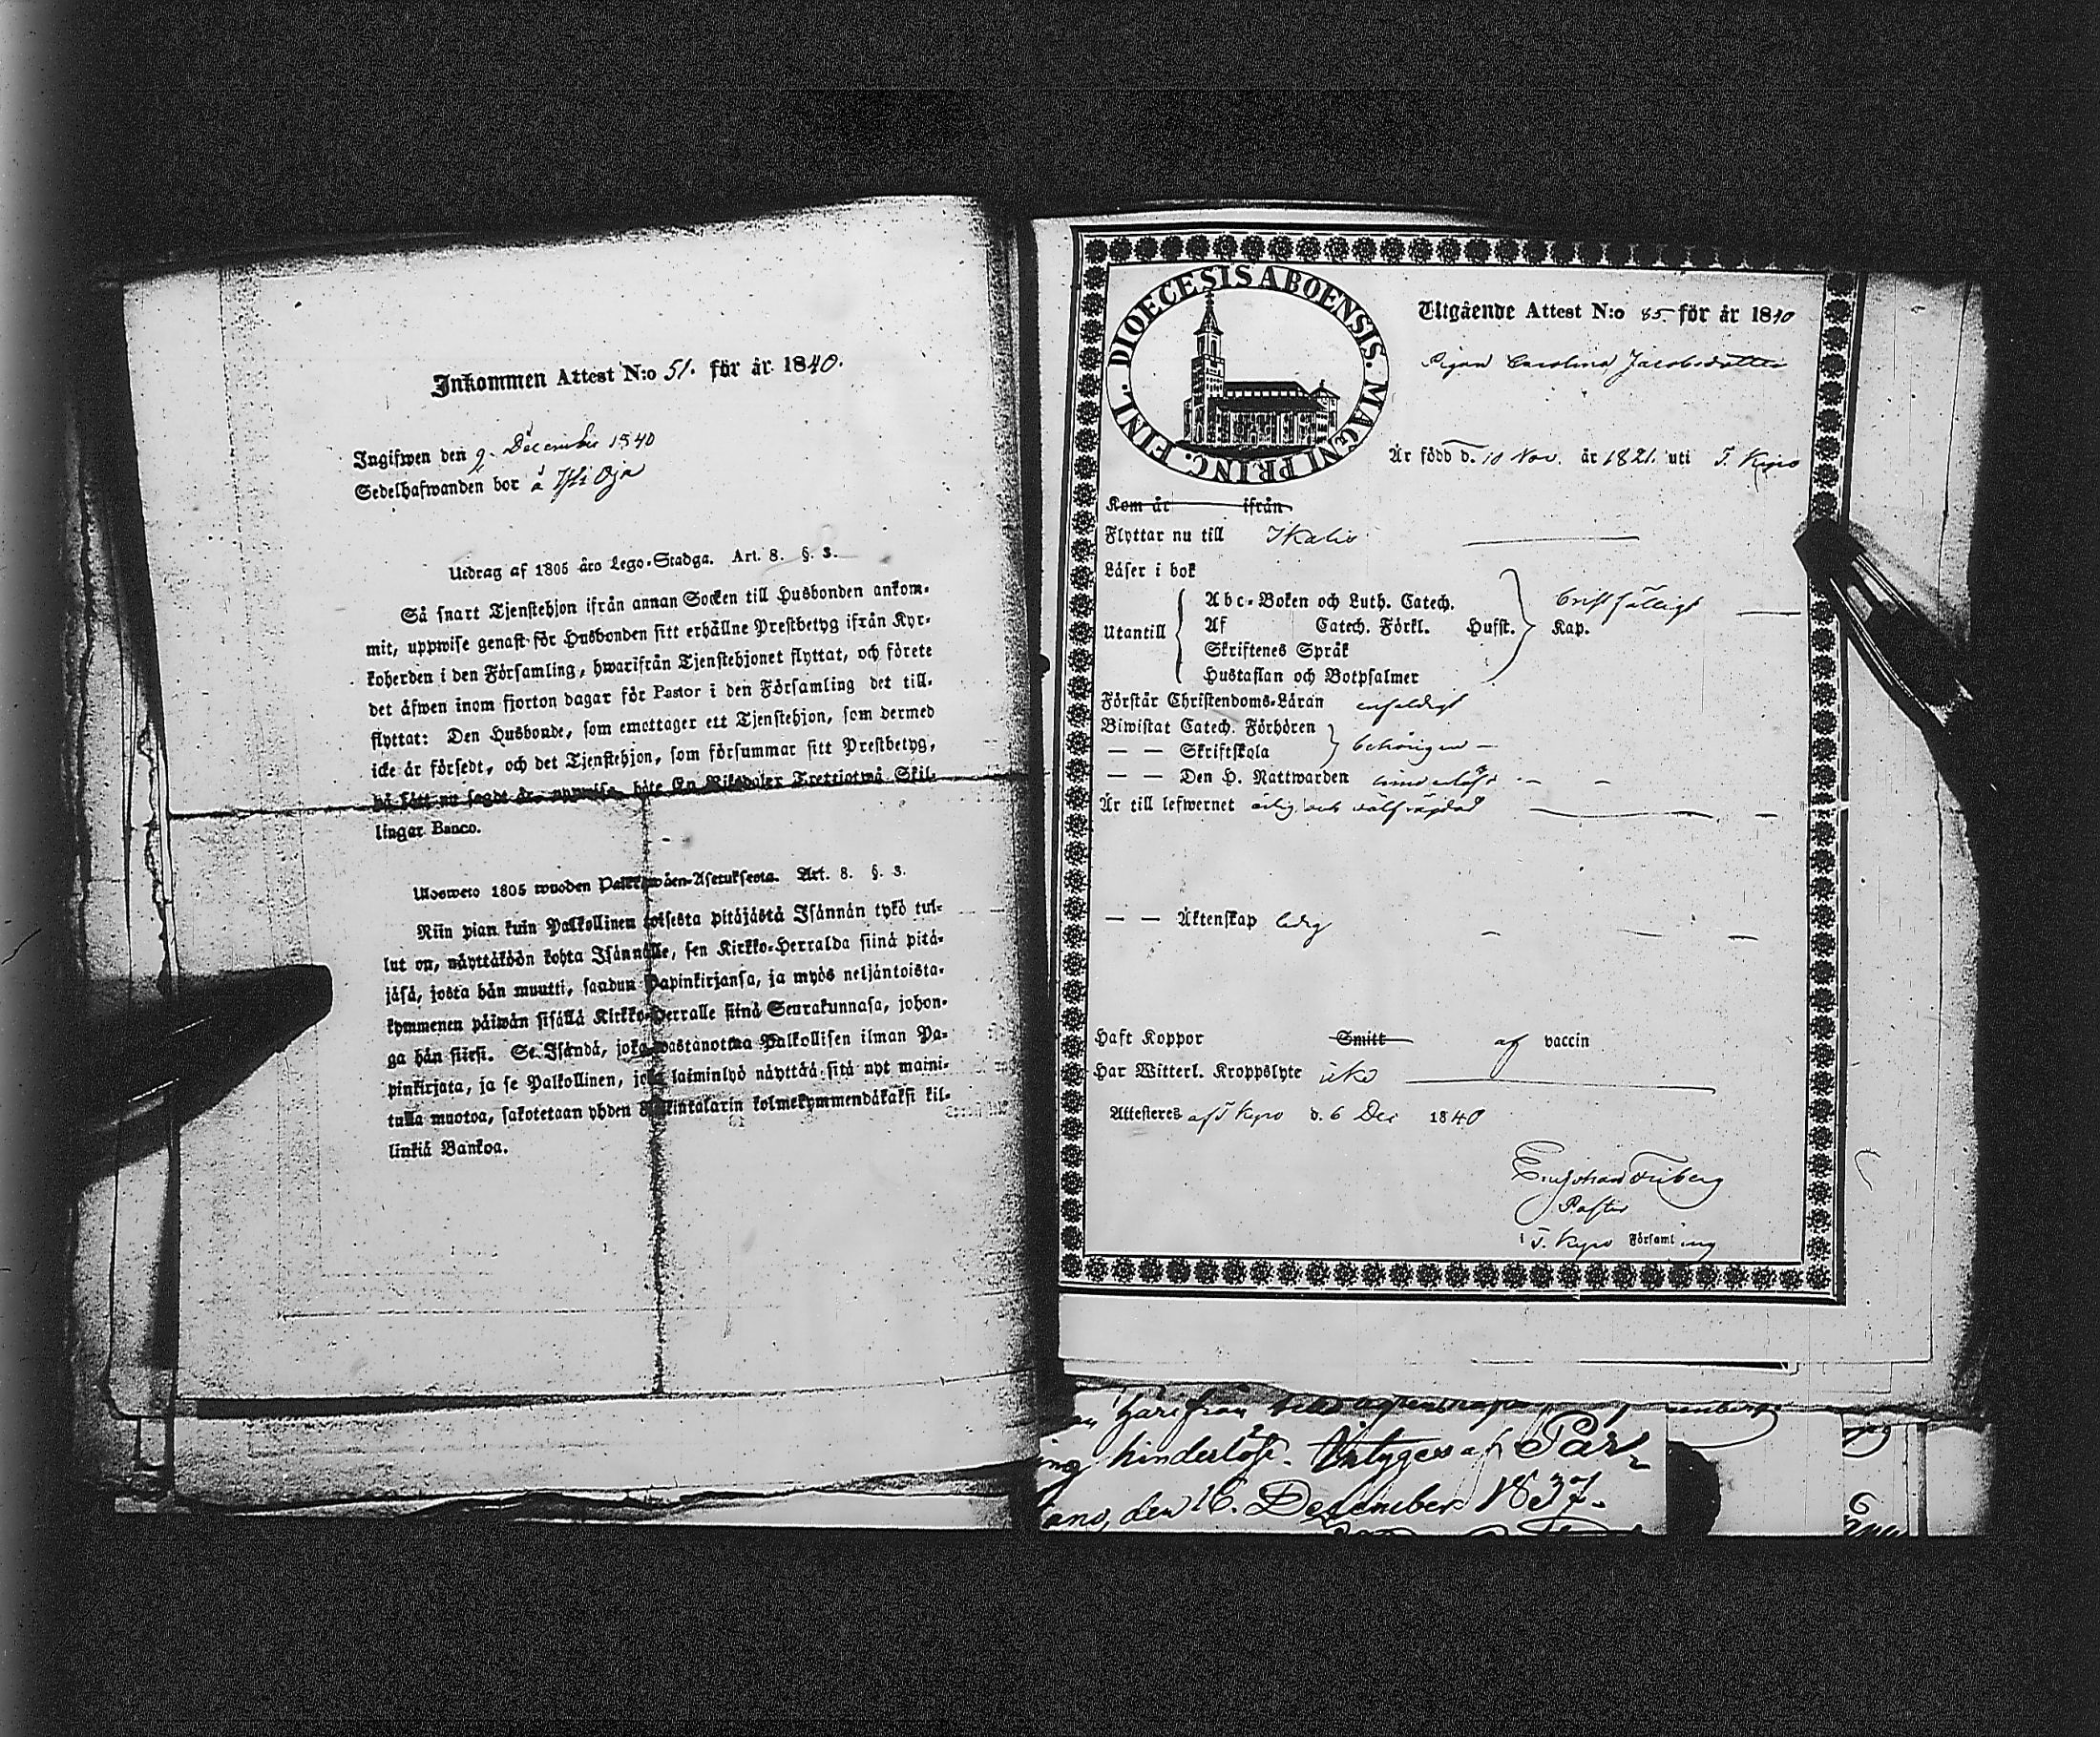 Inkommen Attest N:o 51. för år 1840.
Ingifwen den 9. December 1840
Sedelhafwanden bor å Oja
Utdrag af 1805 års Lego-Stadga. Art. 8. §. 3.
Så snart Tjenstehjon ifrån annan Socken till Husbonden ankom-
mit, uppwise genast för Husbonden sitt erhållne Prestbetyg ifrån Kyr-
koherden i den Församling, hwarifrån Tjenstehjonet flyttat, och förete
det äfwen inom fjorton dagar för Pastor i den Församling det till-
flyttat: Den Husbonde, som emottager ett Tjenstehjon, som dermed
icke är försedt, och det Tjenstehjon, som försummar sitt Prestbetyg,
på sätt nu sagdt är, uppwisa, böte En Riksdaler Trettiotwå Skil-
lingar Banco.
Ulosweto 1805 wuoden Palkkawäen-Asetuksesta. Art. 8. §. 3.
Niin pian kuin Palkollinen toisesta pitäjästä Isännän tykö tul-
lut on, näyttäköön kohta Isännälle, sen Kirkko-Herralda siinä pitä-
jäsä, josta hän muutti, saadun Papinkirjansa, ja myös neljäntoista-
kymmenen päiwän sisällä Kirkko-Herralle siinä Seurakunnasa, johon-
ga hän siirsi. Se Isändä, joka wastanottaa Palkollisen ilman Pa-
pinkirjata, ja se Palkollinen, joka laiminlyö näyttää sitä nyt maini-
tulla muotoa, sakotetaan yhden Riikintalarin kolmekymmendäkaksi kil-
linkiä Bankoa.
DIOECESIS ABOENSIS. MAGNI PRINC. FINL.
Utgående Attest N:o 85. för år 1840
Pigan Carolina Jacobsdotter
Är född d. 10 Nov. år 1821. uti T. Kyro
Kom år ifrån
Flyttar nu till Ikalis
Läser i bok
Utantill
Abc-Boken och Luth. Catech.
Af Catech. Förkl. Hust. Kap.
Skriftenes Språk
Hustaflan och Botpsalmer
Förstår Christendoms-Läran enfaldigt
Biwistat Catech. Förhören
— — Skriftskola behörigen —
— — Den H. Nattwarden
Är till lefwernet ärlig och välfrägdad
— — Äktenskap ledig
Haft Koppor Smitt af vaccin
Har Witterl. Kroppslyte icke
Attesteres af T Kyro d. 6 Dec 1840
Friberg
Pastor
i T. Kyro Församling
härifrån
hinderlöst. Intygas af Par-
ano, den 16. December 1837.